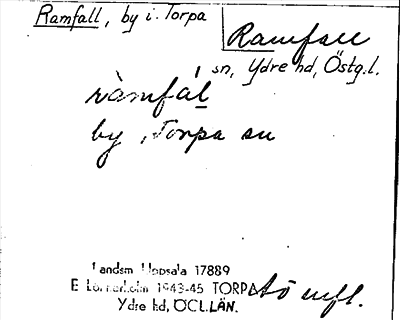 Ramfall, by i Torpa
Ramfall
sn, Ydre hd, Östg.l.
ràmfál
by, Torpa sn
Landsm Uppsala 17889
E 1943-45 TORPA
Ydre hd, ÖGL.LÄN.